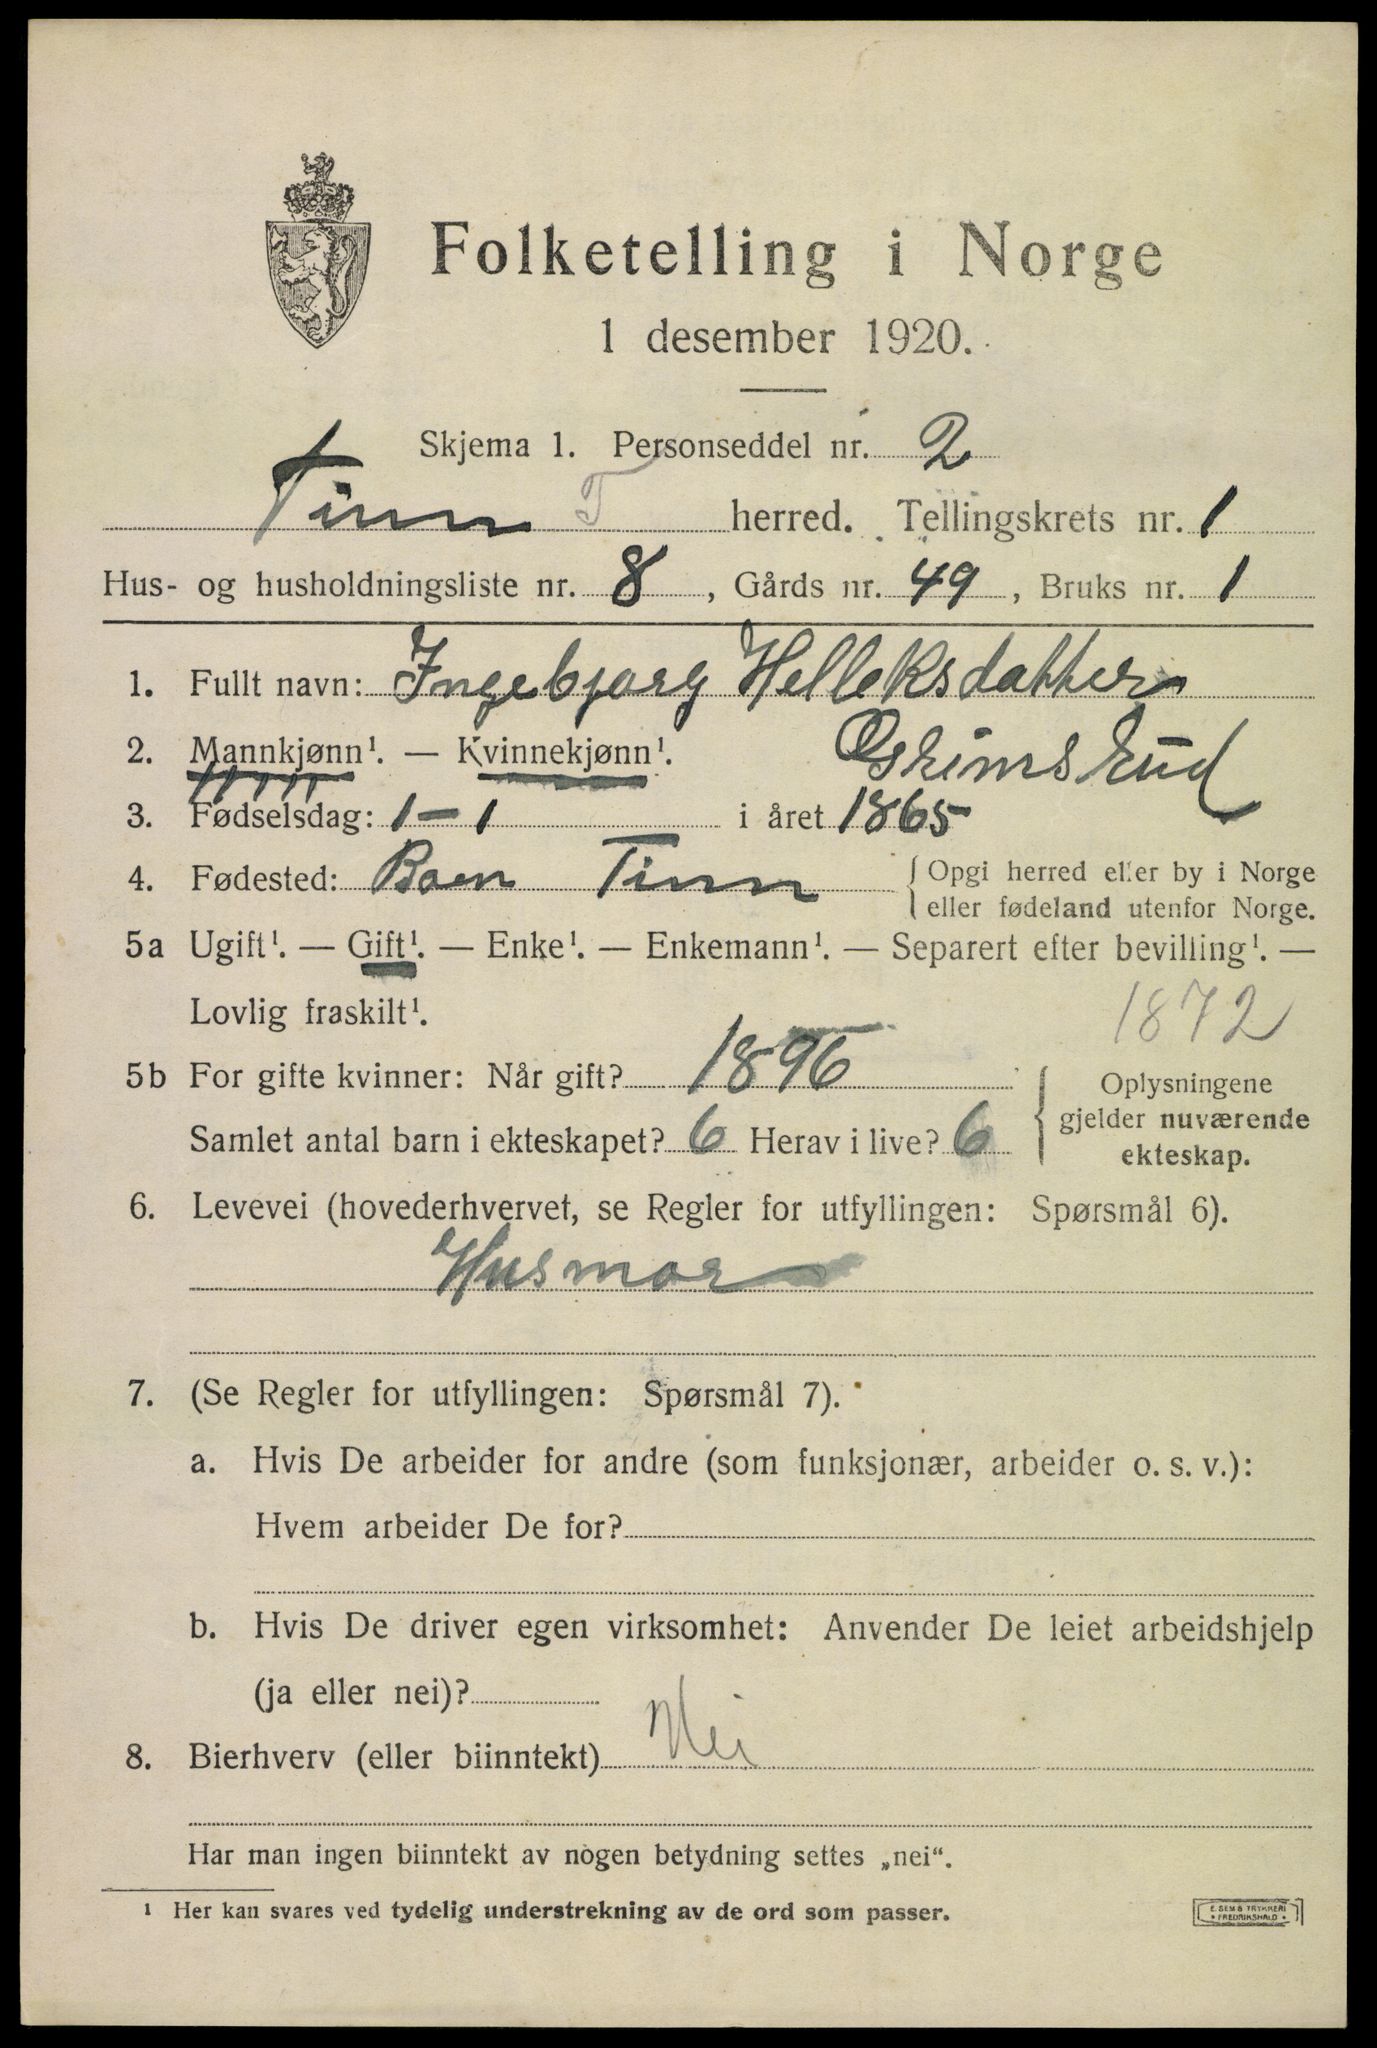 Folketelling i Norge
1 desember 1920.
Skjema 1. Personseddel nr. 2
Tinn T herred. Tellingskrets nr. 1
Hus- og husholdningsliste nr. 8, Gårds nr. 49, Bruks nr. 1
1. Fullt navn: Ingebjørg Helleksdatter
2. Mannkjønn¹. — Kvinnekjønn¹.
3. Fødselsdag: 1-1 i året 1865
4. Fødested: Tinn { Opgi herred eller by i Norge
eller fødeland utenfor Norge.
5a Ugift¹. — Gift¹. — Enke¹. — Enkemann¹. — Separert efter bevilling¹. —
Lovlig fraskilt¹.
1872
5b For gifte kvinner: Når gift? 1896
Samlet antal barn i ekteskapet? 6 Herav i live? 6
{ Oplysningene
gjelder nuværende
ekteskap.
6. Levevei (hovederhvervet, se Regler for utfyllingen: Spørsmål 6).
Husmor
7. (Se Regler for utfyllingen: Spørsmål 7).
a. Hvis De arbeider for andre (som funksjonær, arbeider o. s. v.):
Hvem arbeider De for?
b. Hvis De driver egen virksomhet: Anvender De leiet arbeidshjelp
(ja eller nei)?
8. Bierhverv (eller biinntekt) Nei
Har man ingen biinntekt av nogen betydning settes „nei“.
¹ Her kan svares ved tydelig understrekning av de ord som passer.
E. SEM'S TRYKKERI
• FREDRIKSHALD •